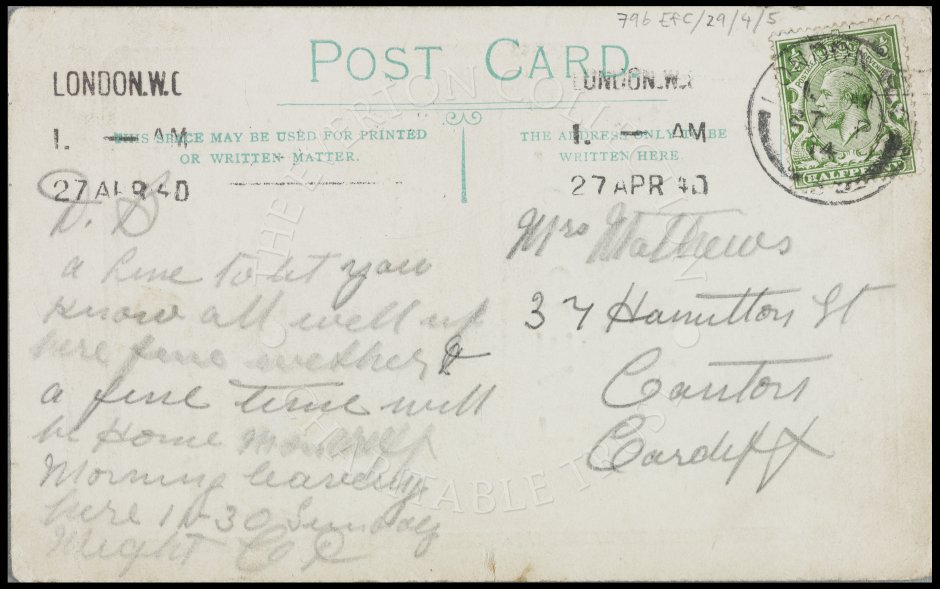 796 EFC/29/4/5
POST CARD.
LONDON.W.C
LONDON.W.C
1. — AM
1. — AM
THIS SPACE MAY BE USED FOR PRINTED
OR WRITTEN MATTER.
THE ADDRESS ONLY TO BE
WRITTEN HERE.
27 APR 4D
27 APR 4D
HALFPENNY
D. S
a line to let you
know all well up
here fine wether &
a fine time will
be Home
Morning leaving
here 11-30 Sunday
Night
Mrs Mathews
37 Hamilton St
Canton
Cardiff